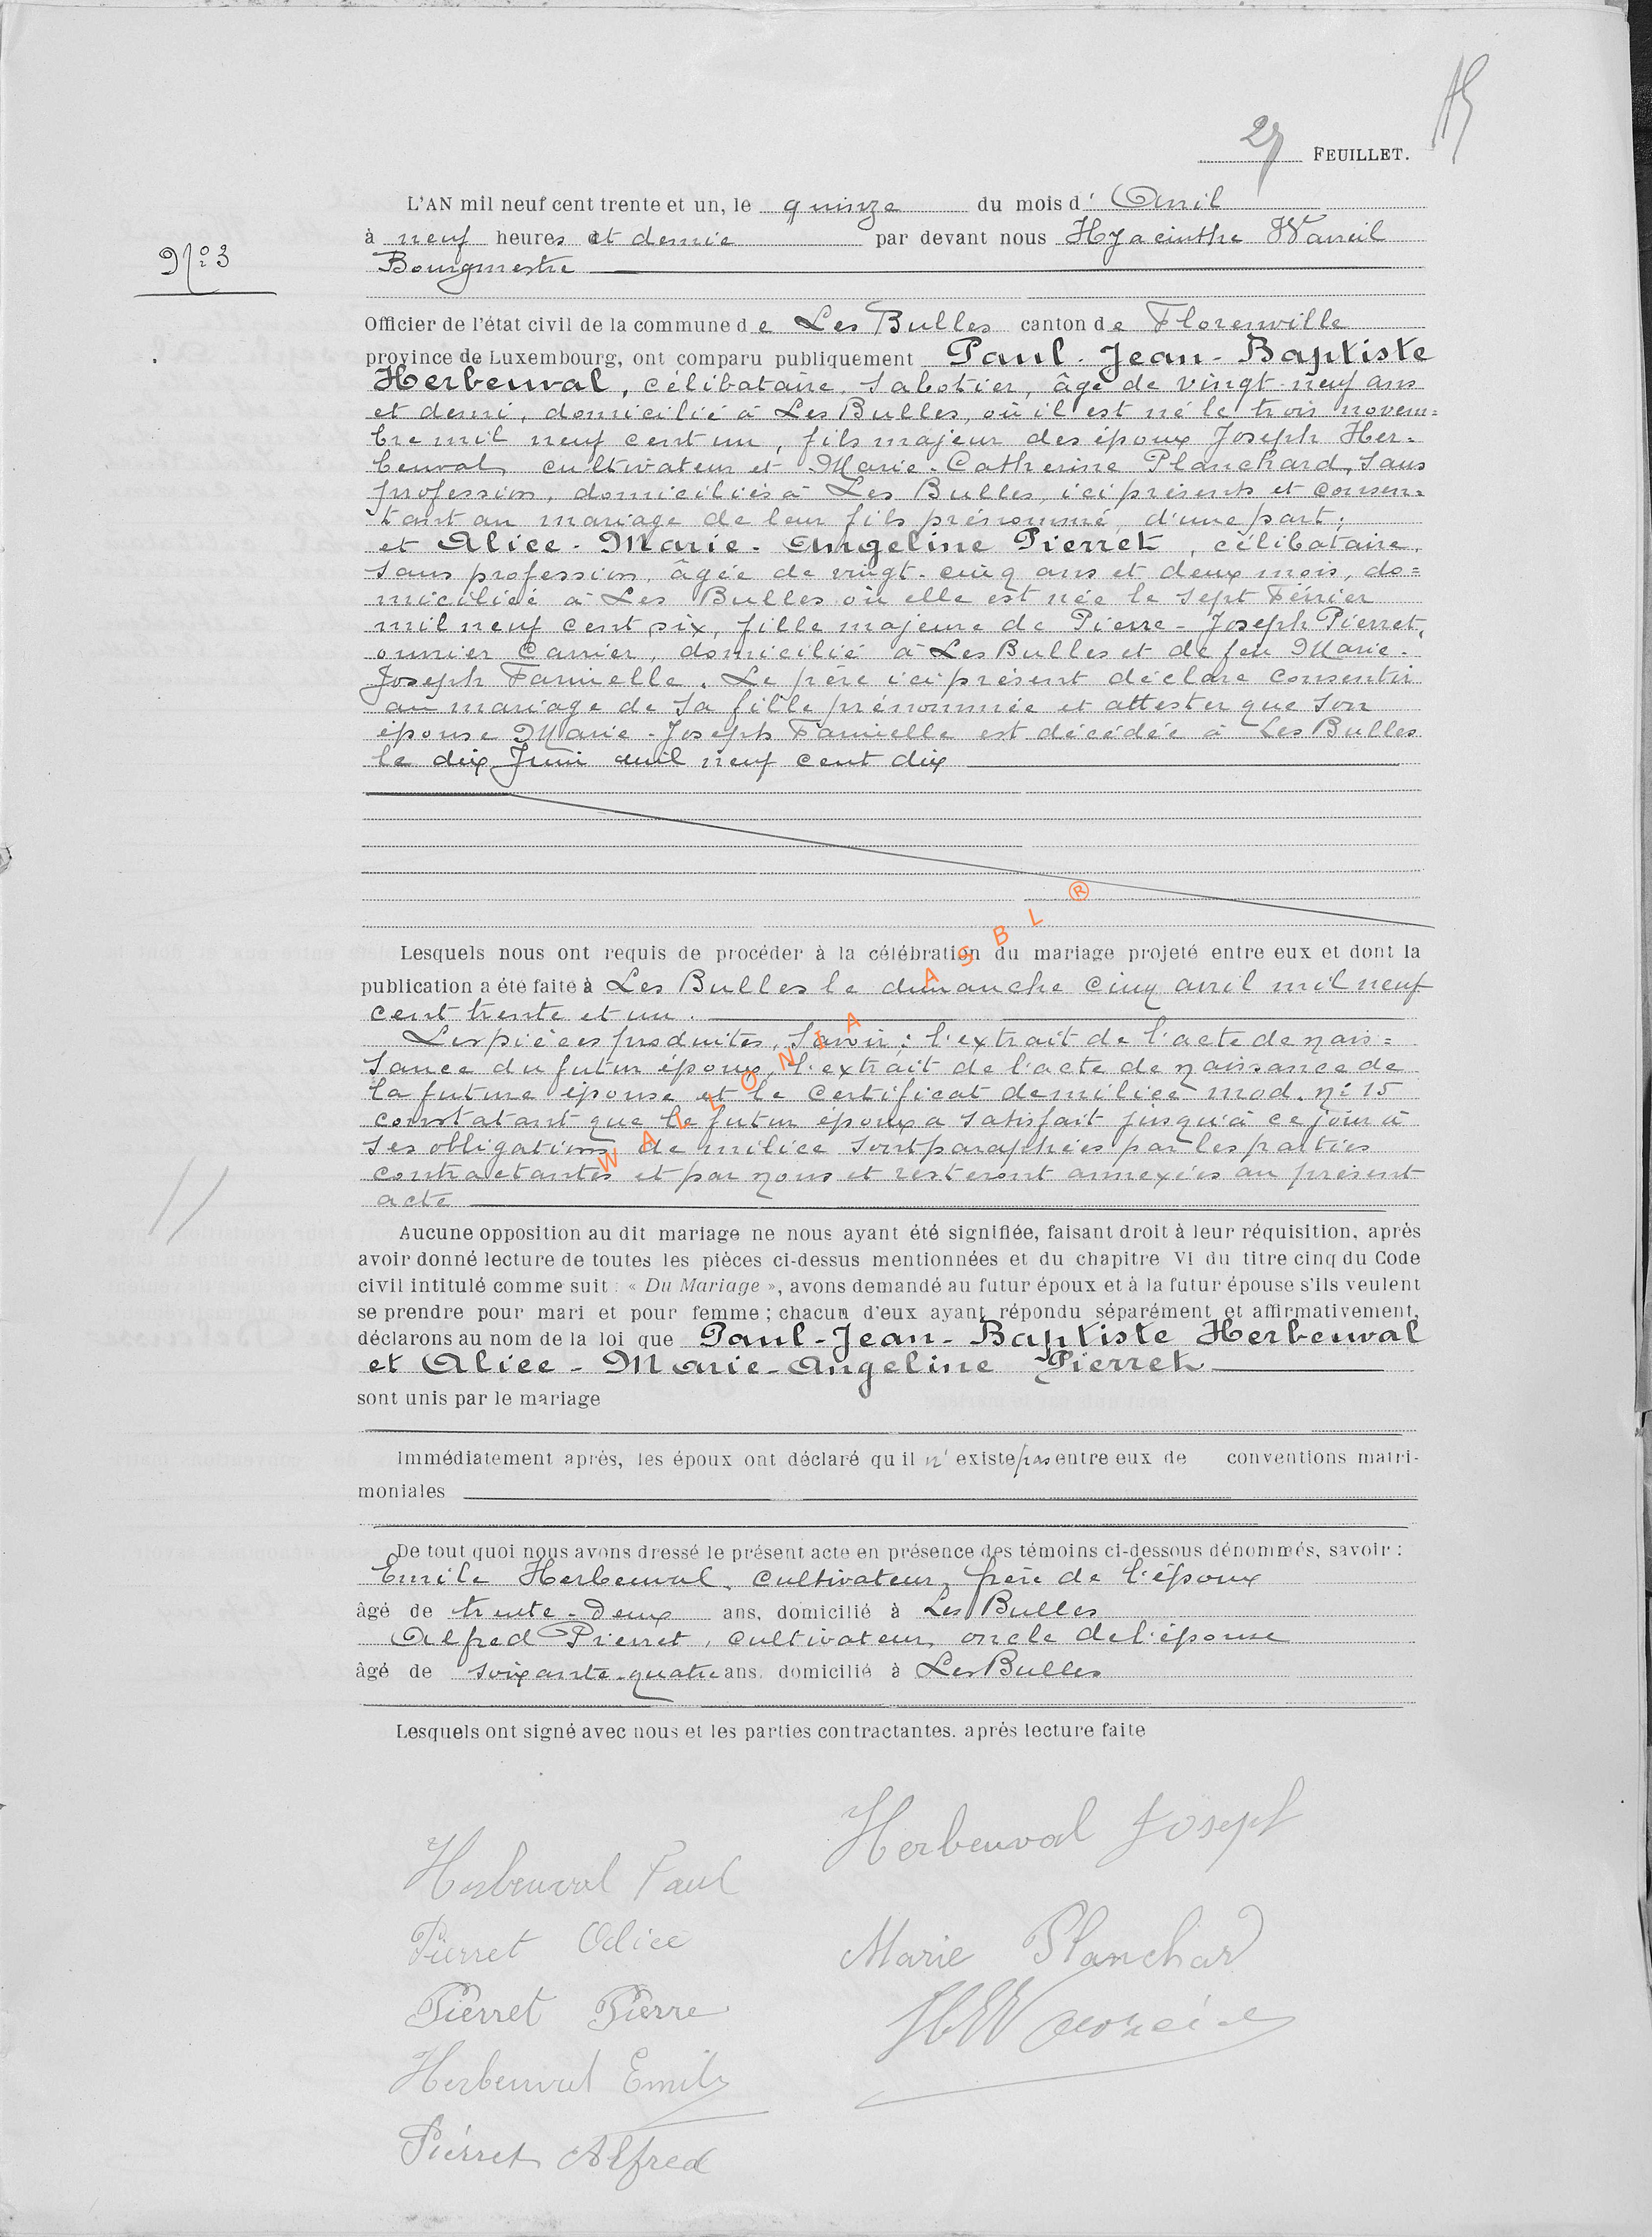 27 FEUILLET.
L'AN mil neuf cent trente et un, le quinze du mois d' Avril
à neuf heures et demie par devant nous Hyacinthe Wavreil
No 3
Bourgmestre
Officier de l'état civil de la commune de Les Bulles canton de Florenville
province de Luxembourg, ont comparu publiquement Paul-Jean-Baptiste
Herbeuval, célibataire, sabotier, âgé de vingt-neuf ans
et demi, domicilié à Les Bulles, où il est né le trois novem=
bre mil neuf cent un, fils majeur des époux Joseph Her-
beuval, cultivateur et Marie-Catherine Planchard, sans
profession, domiciliés à Les Bulles, ici présents et consen-
tant au mariage de leur fils prénommé, d'une part;
et Alice-Marie-Angeline Pierret, célibataire,
sans profession, âgée de vingt-cinq ans et deux mois, do=
miciliée à Les Bulles où elle est née le sept Février
mil neuf cent six, fille majeure de Pierre-Joseph Pierret,
ouvrier carrier, domicilié à Les Bulles et de feu Marie-
Joseph Famielle. Le père ici présent déclare consentir
au mariage de sa fille prénommée et attester que son
épouse Marie-Joseph Famielle est décédée à Les Bulles
le dix Juin mil neuf cent dix
Lesquels nous ont requis de procéder à la célébration du mariage projeté entre eux et dont la
publication a été faite à Les Bulles le dimanche cinq avril mil neuf
cent trente et un.
Les pièces produites, savoir: l'extrait de l'acte de nais=
sance du futur époux, l'extrait de l'acte de naissance de
la future épouse et le certificat de milice mod. No 15
constatant que le futur époux a satisfait jusqu'à ce jour à
ses obligations de milice sont paraphées par les parties
contractantes et par nous et resteront annexées au présent
acte
WALLONIA ASBL ®
Aucune opposition au dit mariage ne nous ayant été signifiée, faisant droit à leur réquisition, après
avoir donné lecture de toutes les pièces ci-dessus mentionnées et du chapitre VI du titre cinq du Code
civil intitulé comme suit : « Du Mariage », avons demandé au futur époux et à la futur épouse s'ils veulent
se prendre pour mari et pour femme ; chacun d'eux ayant répondu séparément et affirmativement,
déclarons au nom de la loi que Paul-Jean-Baptiste Herbeuval
et Alice-Marie-Angeline Pierret
sont unis par le mariage
Immédiatement après, les époux ont déclaré qu il n' existe pas entre eux de conventions matri-
moniales
De tout quoi nous avons dressé le présent acte en présence des témoins ci-dessous dénommés, savoir :
Emile Herbeuval, cultivateur, frère de l'époux
âgé de trente-deux ans, domicilié à Les Bulles
Alfred Pierret, cultivateur, oncle de l'épouse
âgé de soixante-quatre ans, domicilié à Les Bulles
Lesquels ont signé avec nous et les parties contractantes. après lecture faite
Herbeuval Joseph
Herbeuval Paul
Pierret Alice
Marie Planchard
Pierret Pierre
Herbeuval Emile
Pierret Alfred